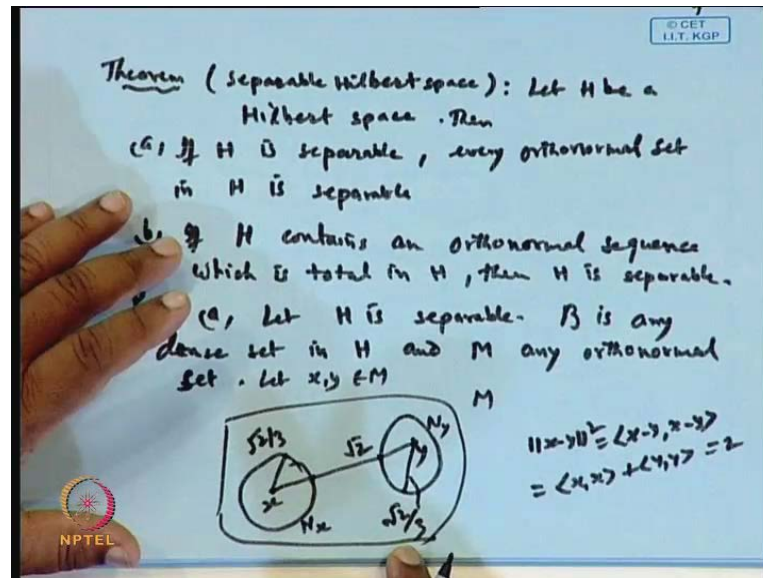 © CET
I.I.T. KGP
Theorem (Separable Hilbert space): Let H be a
Hilbert space. Then
(a, If H is separable, every orthonormal set
in H is separable
b, If H contains an orthonormal sequence
which is total in H, then H is separable.
(a, Let H is separable. B is any
dense set in H and M any orthonormal
set. Let x,y ∈ M
M
√2/3
√2
Ny
y
x
Nx
√2/3
||x-y||² = <x-y, x-y>
= <x,x> + <y,y> = 2
NPTEL